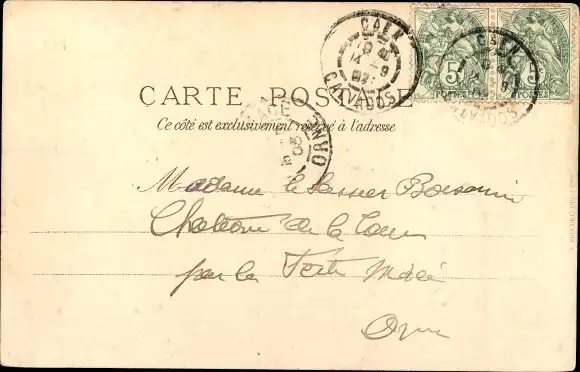 CAEN
CALVADOS
5
POSTES
CAEN
5
POSTES
CARTE POSTALE
Ce côté est exclusivement réservé à l'adresse
ORNE
Madame le
Château de la Cour
par la Ferté Macé
Orne